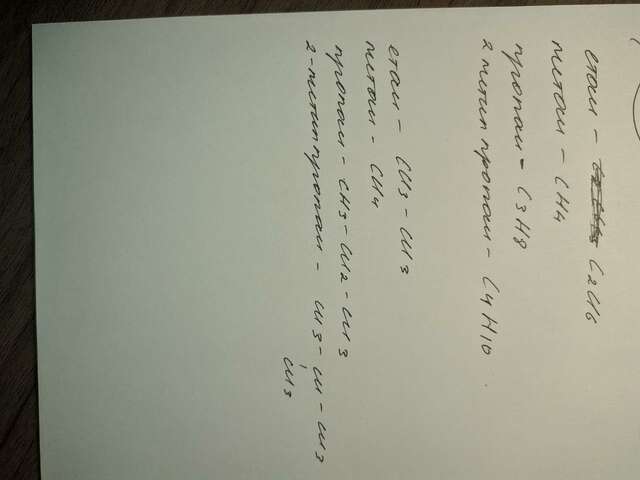 етан - C2H6
метан - CH4
пропан - C3H8
2 метилпропан - C4H10
етан - CH3 - CH3
метан - CH4
пропан - CH3 - CH2 - CH3
2-метилпропан - CH3 - CH - CH3
CH3